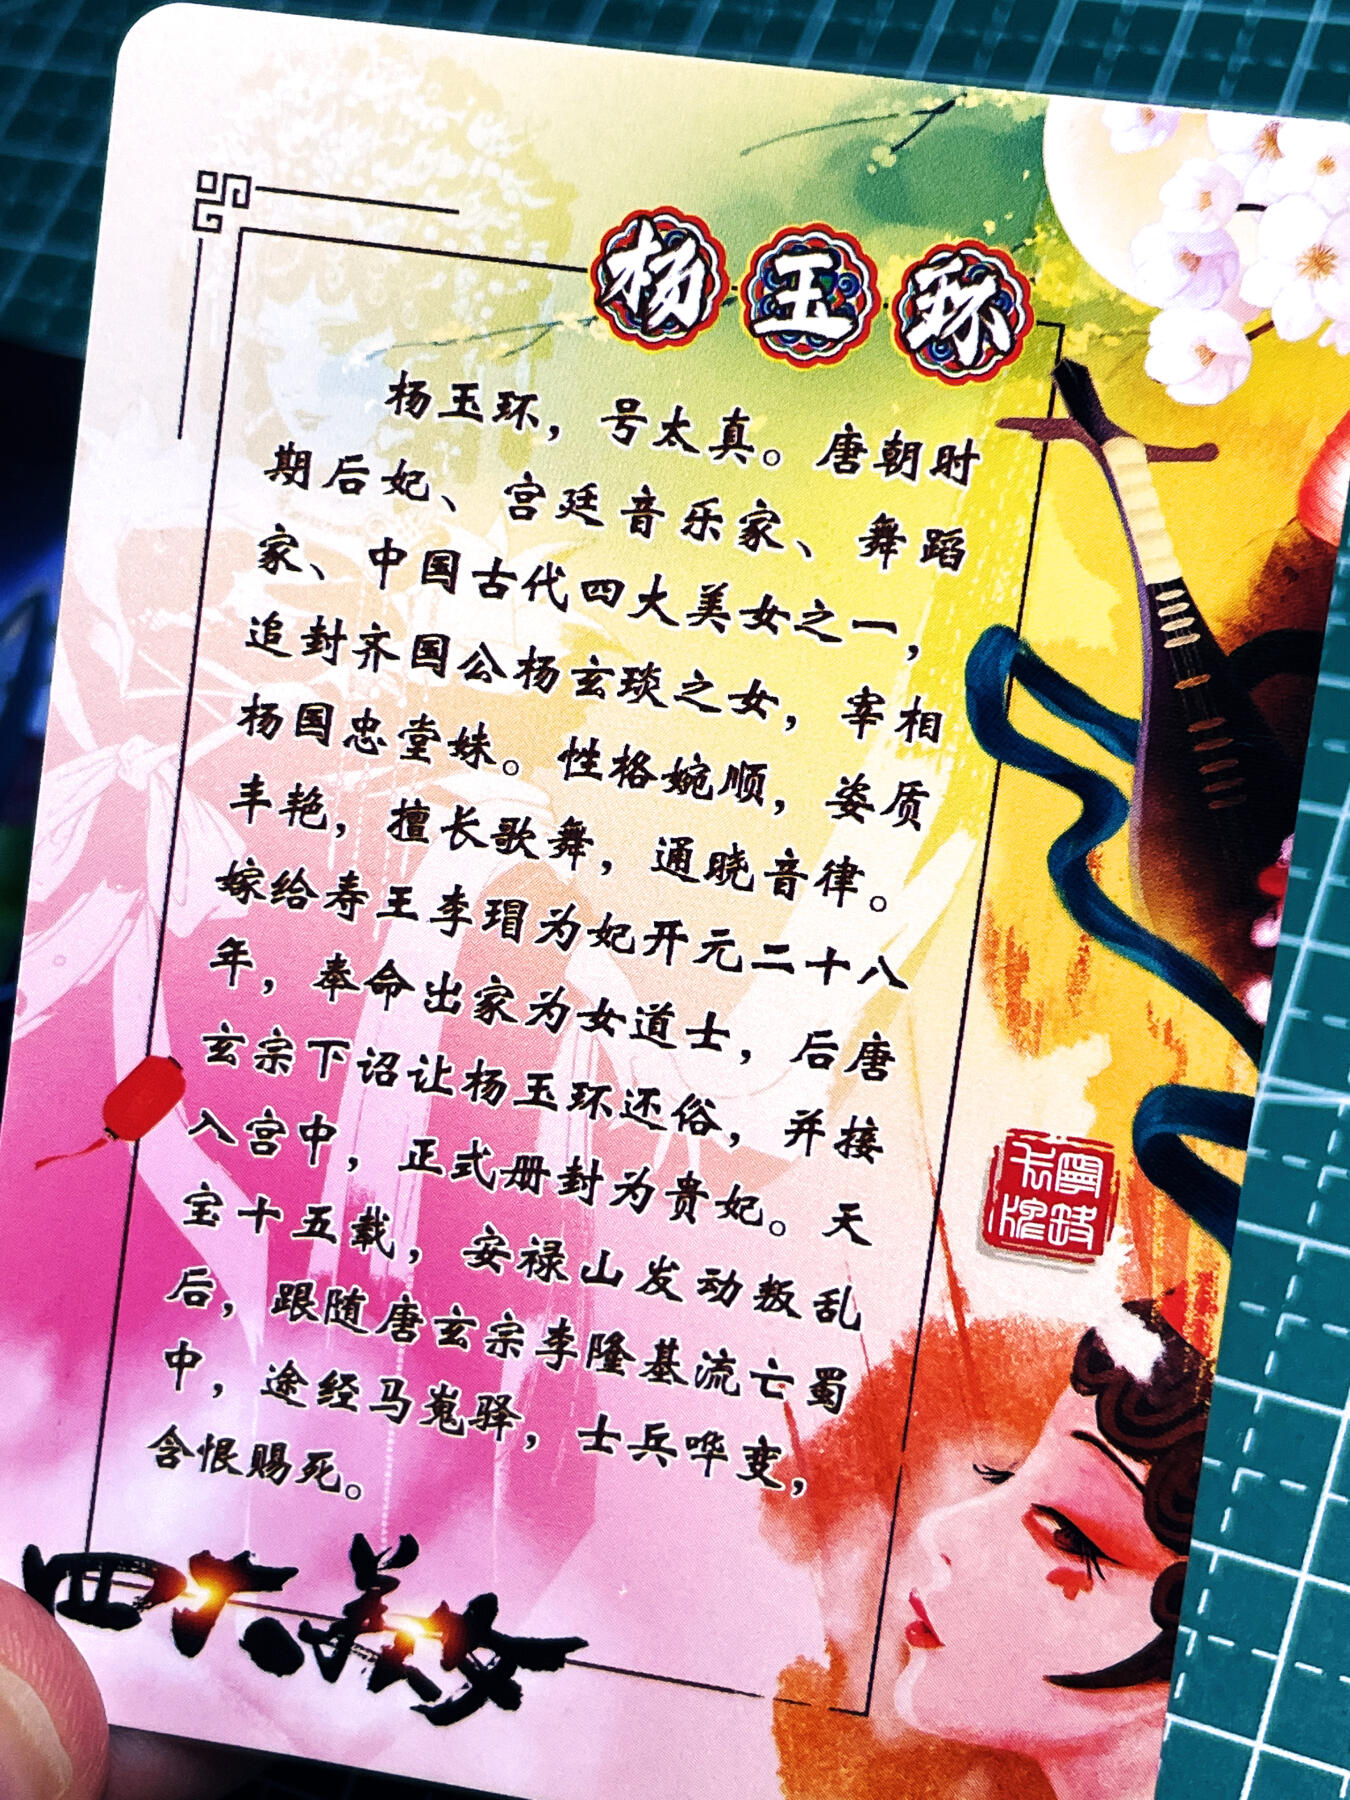 杨玉环
杨玉环，号太真。唐朝时
期后妃、宫廷音乐家、舞蹈
家、中国古代四大美女之一，
追封齐国公杨玄琰之女，宰相
杨国忠堂妹。性格婉顺，姿质
丰艳，擅长歌舞，通晓音律。
嫁给寿王李瑁为妃开元二十八
年，奉命出家为女道士，后唐
玄宗下诏让杨玉环还俗，并接
入宫中，正式册封为贵妃。天
宝十五载，安禄山发动叛乱
后，跟随唐玄宗李隆基流亡蜀
中，途经马嵬驿，士兵哗变，
含恨赐死。
四大美女